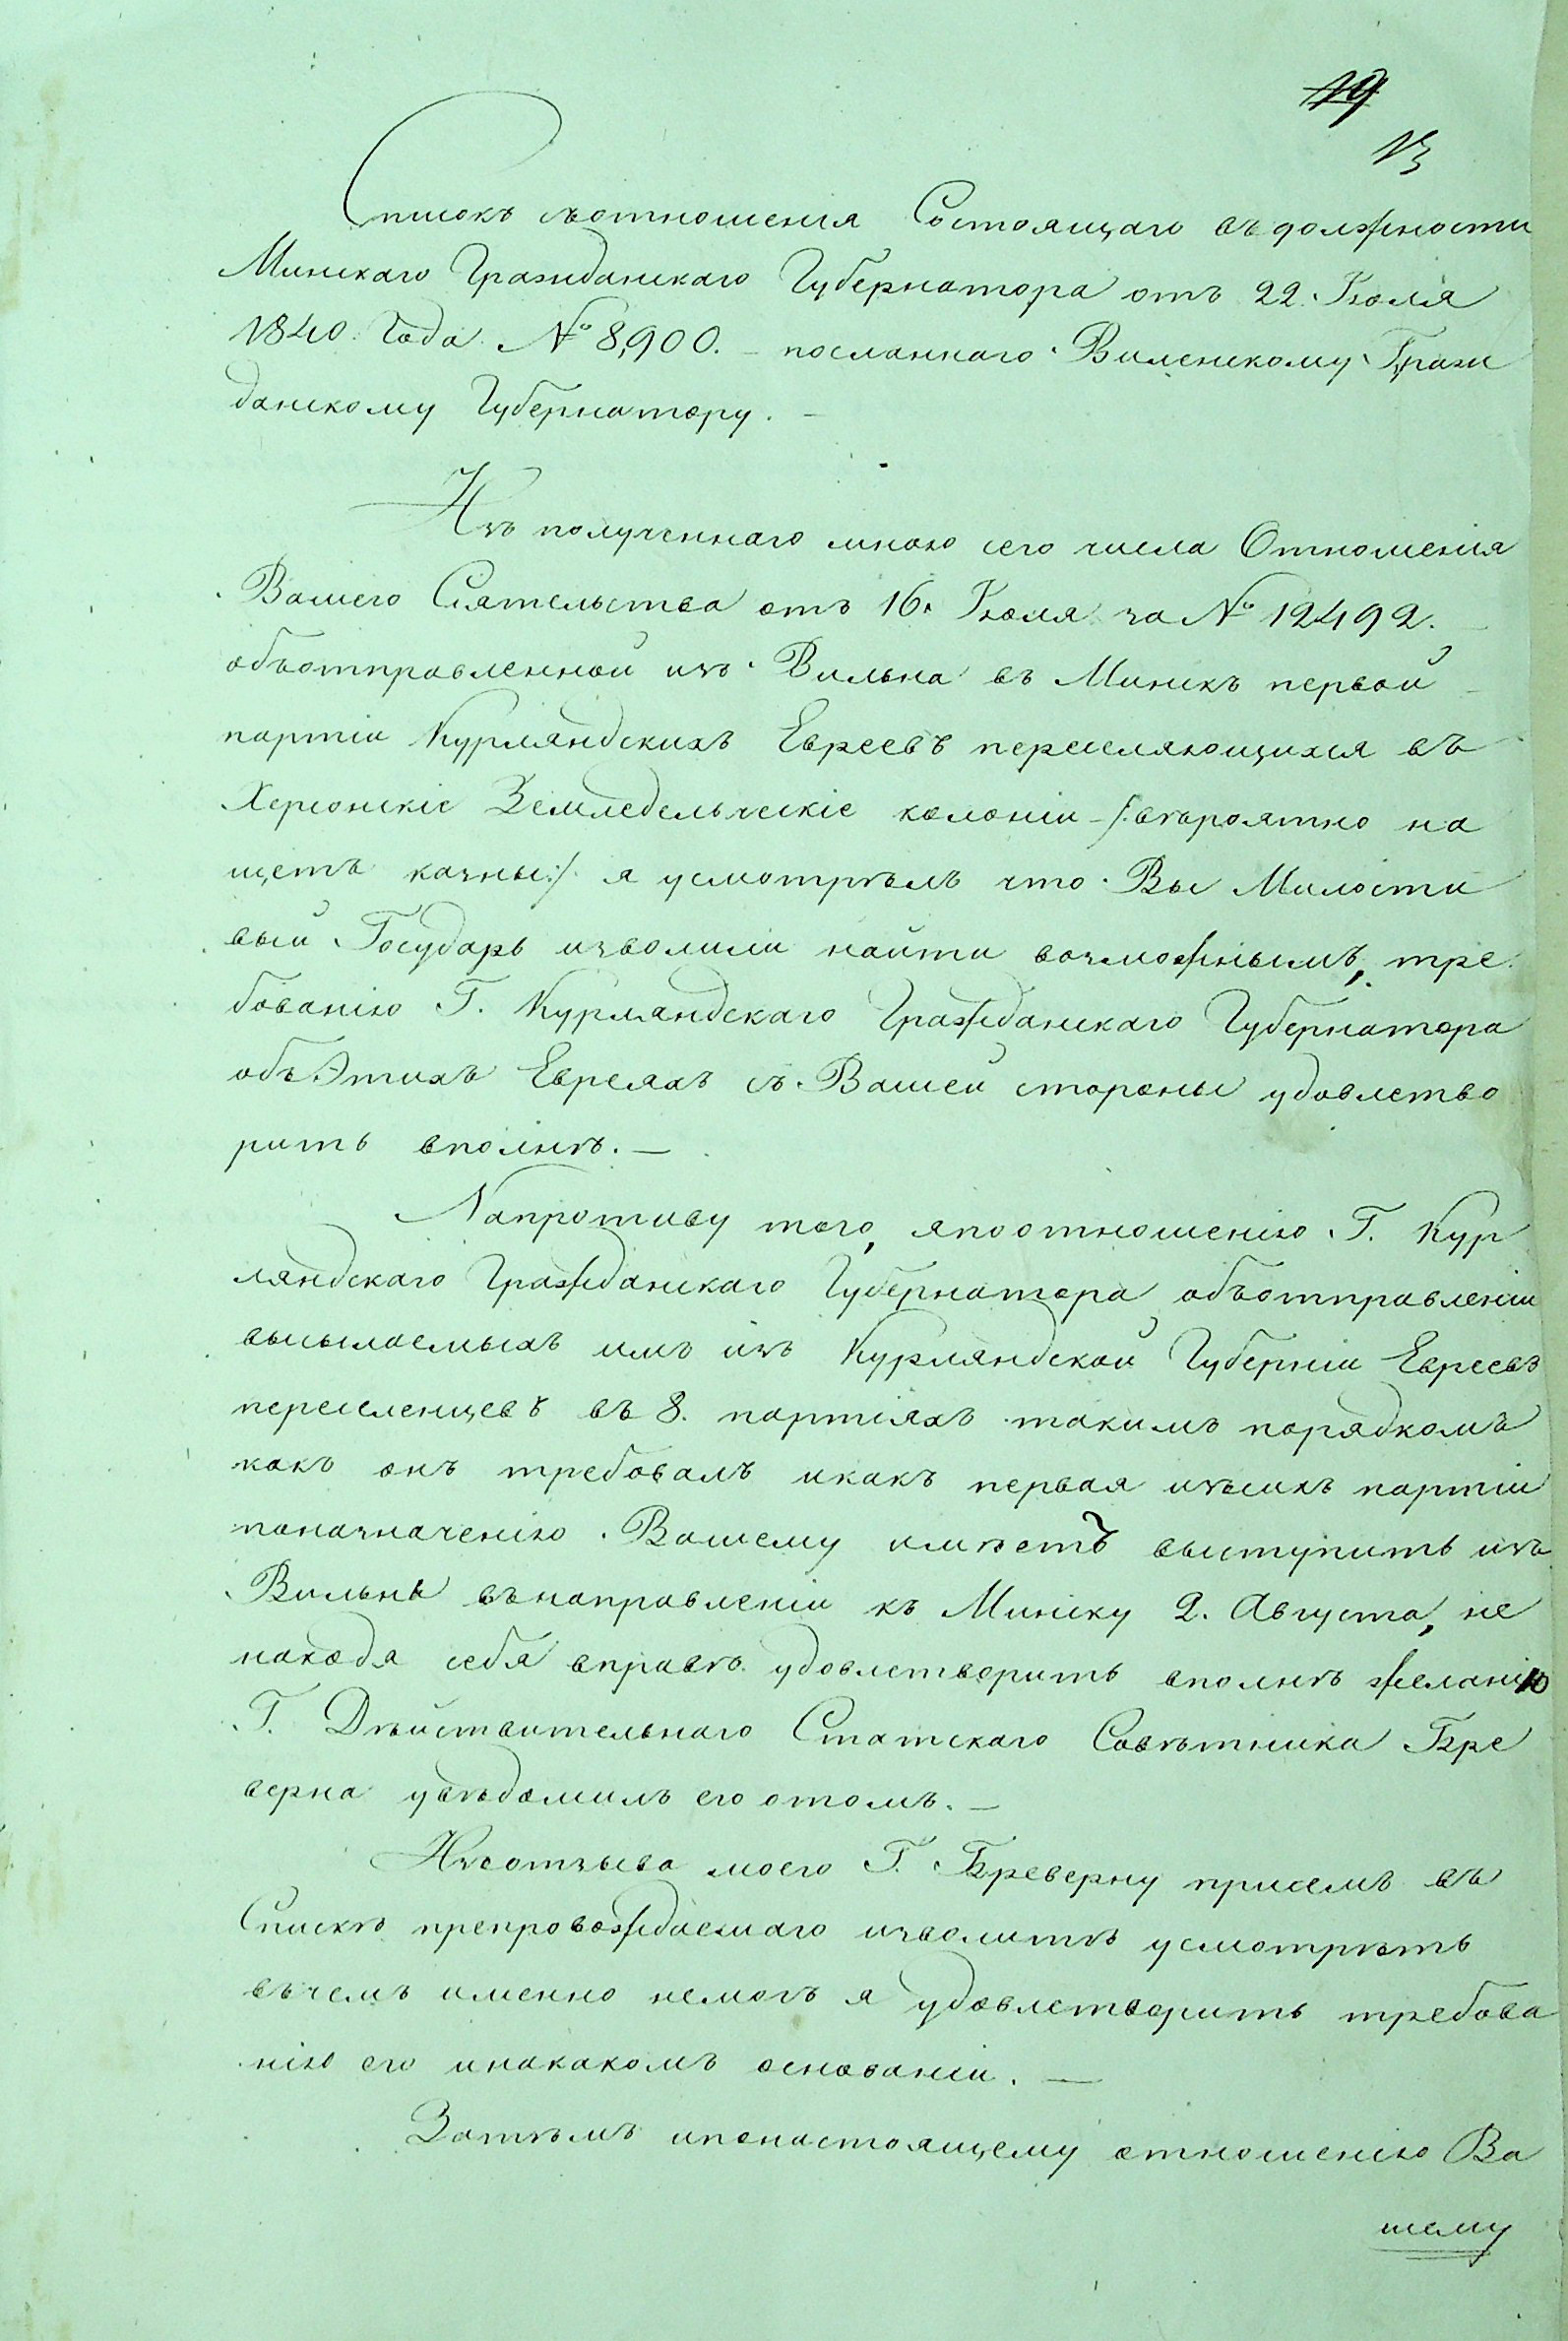 19
13
Списокъ съотношенія Состоящаго въ должности
Минскаго Гражданскаго Губернатора отъ 22. Іюля
1840. Года № 8,900. – посланнаго Виленскому Граж
данскому Губернатору. –
Изъ полученнаго мною сего числа Отношенія
Вашего Сіятельства отъ 16. Іюля за № 12492.
объотправленной изъ Вильна въ Минскъ первой
партіи Курляндскихъ Евреевъ переселяющихся въ
Херсонскіе Земледельческіе колоніи –/:вѣроятно на
щетъ казны:/ я усмотрѣлъ что Вы Милости
вый Государь изволили найти возможнымъ, тре
бованію Г. Курляндскаго Гражданскаго Губернатора
объ Этихъ Евреяхъ съ Вашей стороны удовлетво
рить вполнѣ. —
Напротиву того, япоотношенію Г. Кур
ляндскаго Гражданскаго Губернатора объотправленіи
высылаемыхъ имъ изъ Курляндской Губерніи Евреевъ
переселенцевъ въ 8. партіяхъ такимъ порядкомъ
какъ онъ требовалъ икакъ первая изъсихъ партіи
поназначенію Вашему имѣетъ выступить изъ
Вильны вънаправленіи къ Минску 2. Августа, не
находя себя вправѣ удовлетворить вполнѣ желанію
Г. Дѣйствительнаго Статскаго Совѣтника Бре
верна увѣдомилъ его отомъ. —
Изъотзыва моего Г. Бреверну присемъ въ
Спискѣ препровождаемаго изволитѣ усмотрѣть
въчемъ именно немогъ я удовлетворить требова
нію его инакакомъ основаніи. —
Затѣмъ ипонастоящему отношенію Ва
шему